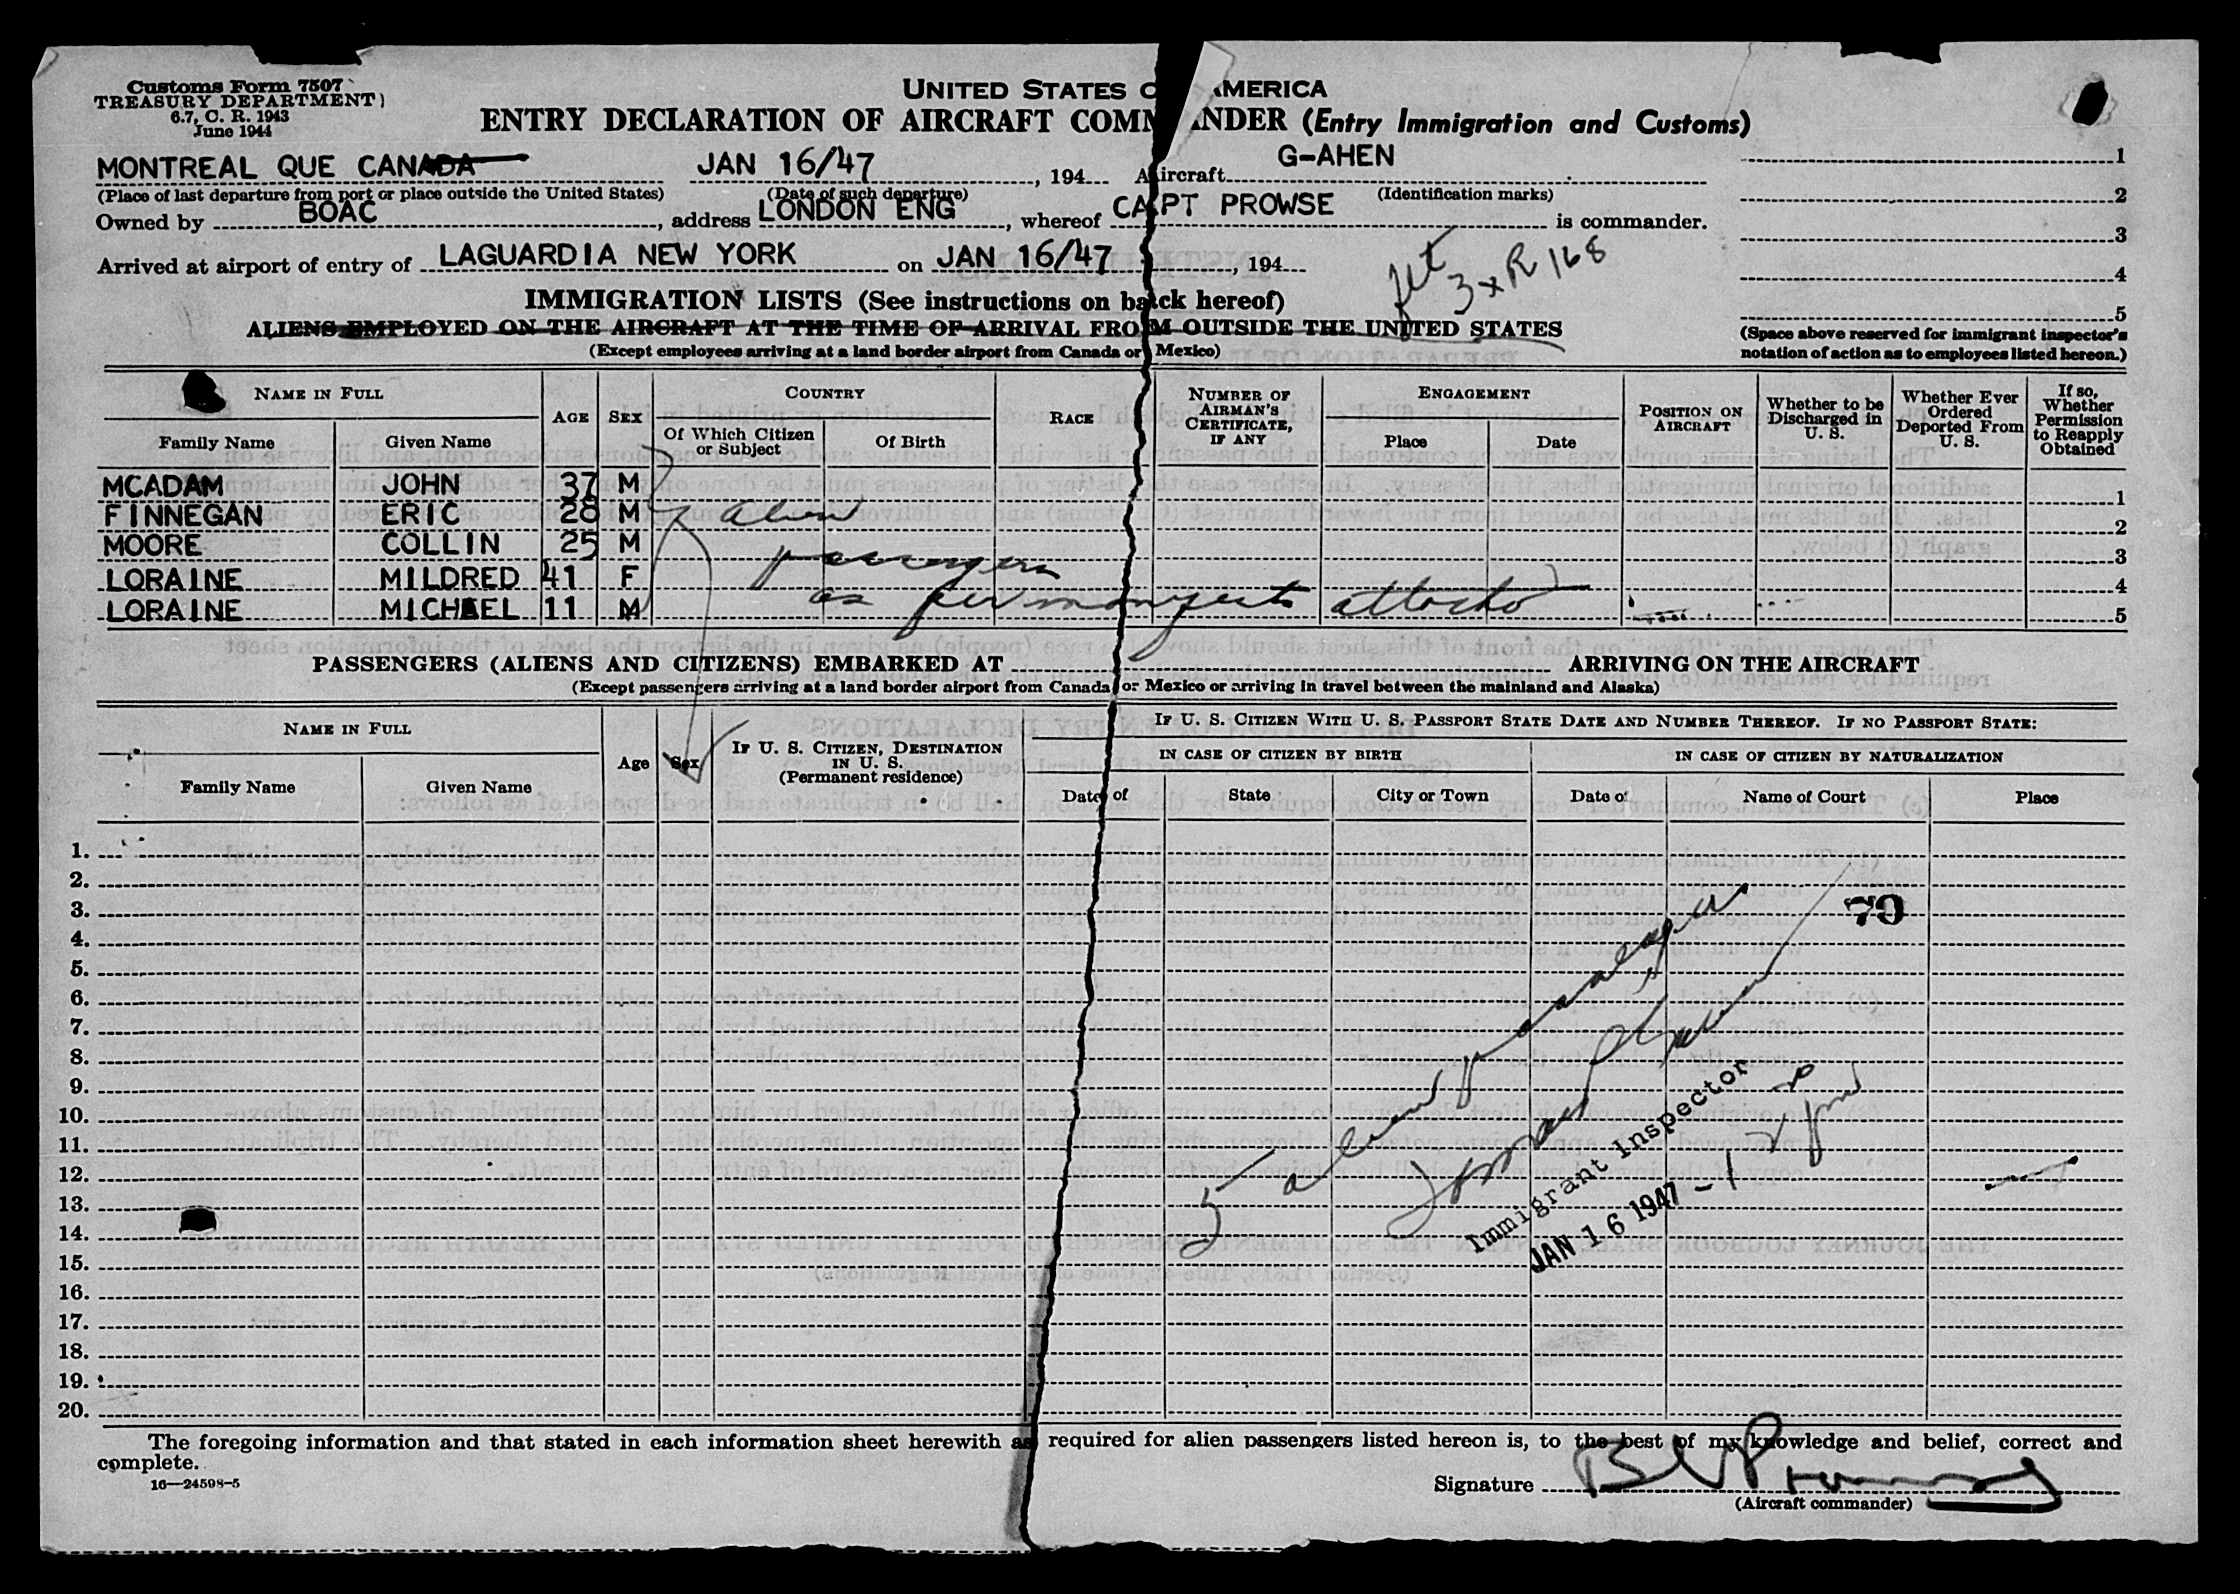 Customs Form 7507
TREASURY DEPARTMENT)
6.7, C. R. 1943
June 1944
UNITED STATES O AMERICA
ENTRY DECLARATION OF AIRCRAFT COMMANDER (Entry Immigration and Customs)
MONTREAL QUE CANADA JAN 16/47, 194 Aircraft G-AHEN 1
(Place of last departure from port or place outside the United States) (Date of such departure) (Identification marks) 2
Owned by BOAC, address LONDON ENG, whereof CAPT PROWSE is commander.
3
Arrived at airport of entry of LAGUARDIA NEW YORK on JAN 16/47, 194
4
3 x R 168
IMMIGRATION LISTS (See instructions on back hereof)
5
ALIENS EMPLOYED ON THE AIRCRAFT AT THE TIME OF ARRIVAL FROM OUTSIDE THE UNITED STATES
(Space above reserved for immigrant inspector's
(Except employees arriving at a land border airport from Canada or Mexico)
notation of action as to employees listed hereon.)
NAME IN FULL AGE SEX COUNTRY RACE NUMBER OF AIRMAN'S CERTIFICATE, IF ANY ENGAGEMENT POSITION ON AIRCRAFT Whether to be Discharged in U. S. Whether Ever Ordered Deported From U. S. If so, Whether Permission to Reapply Obtained
Family Name Given Name Of Which Citizen or Subject Of Birth Place Date
MCADAM JOHN 37 M 1
FINNEGAN ERIC 28 M alien 2
MOORE COLLIN 25 M passengers 3
LORAINE MILDRED 41 F 4
LORAINE MICHAEL 11 M as per manifests attached 5
PASSENGERS (ALIENS AND CITIZENS) EMBARKED AT ARRIVING ON THE AIRCRAFT
(Except passengers arriving at a land border airport from Canada or Mexico or arriving in travel between the mainland and Alaska)
NAME IN FULL Age Sex IF U. S. CITIZEN, DESTINATION IN U. S. (Permanent residence) IF U. S. CITIZEN WITH U. S. PASSPORT STATE DATE AND NUMBER THEREOF. IF NO PASSPORT STATE:
IN CASE OF CITIZEN BY BIRTH IN CASE OF CITIZEN BY NATURALIZATION
Family Name Given Name Date of State City or Town Date of Name of Court Place
1.
2.
3. 70
4.
5.
6.
7.
8.
9.
10.
11.
12.
13.
14.
15.
16.
17.
18.
19.
20.
5 alien passengers
Immigrant Inspector
JAN 16 1947
The foregoing information and that stated in each information sheet herewith as required for alien passengers listed hereon is, to the best of my knowledge and belief, correct and
complete.
16—24598-5
Signature
(Aircraft commander)